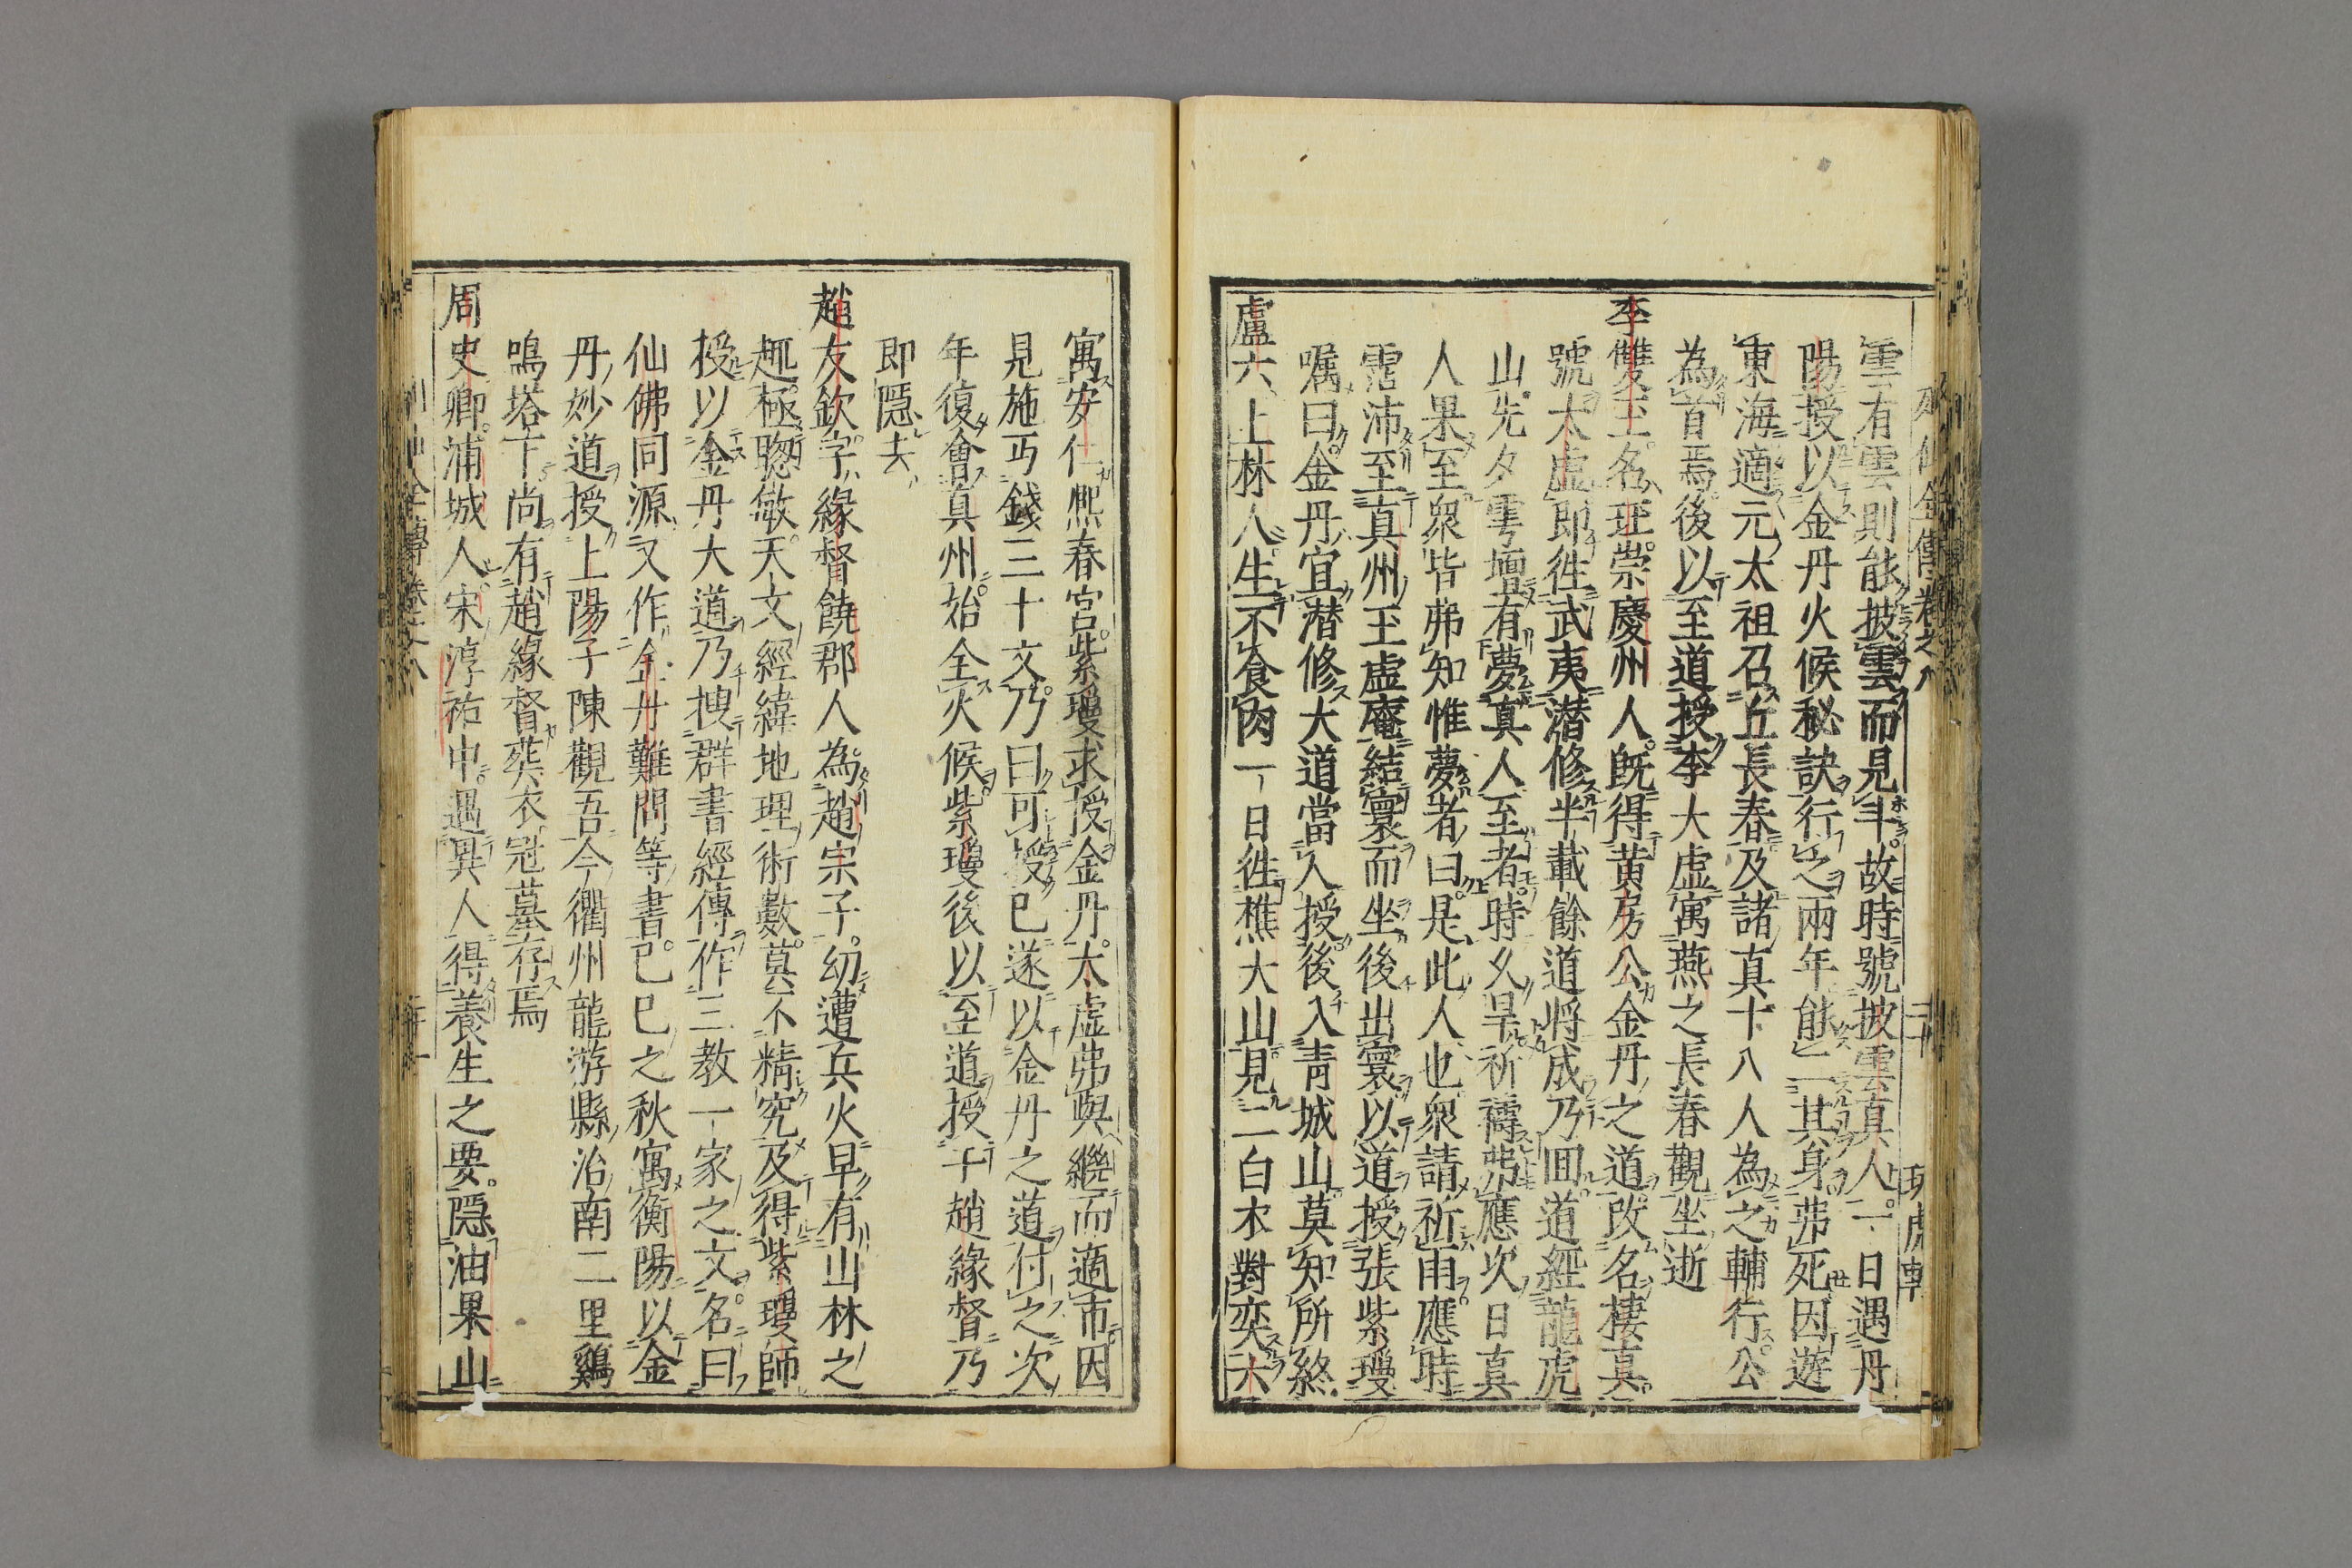 列仙全傳卷之八
二十
玩虎軒
雲有雲則能披雲而見斗故時號披雲真人一日遇丹
陽授以金丹火候秘訣行之兩年能二其身弗死因遊
東海適元太祖召丘長春及諸真十八人為之輔行公
為首焉後以至道授李大虛寓燕之長春觀坐逝
李雙玉名珏崇慶州人旣得黄房公金丹之道改名棲真
號太虛即徃武夷潜修半載餘道將成乃囬道經龍虎
山先夕雩壇有夢真人至者時久旱祈禱弗應次日真
人果至衆皆弗知惟夢者曰是此人也衆請祈雨應時
霑沛至真州玉虛庵結寰而坐後出寰以道授張紫瓊
囑曰金丹宜潜修大道當人授後入青城山莫知所終
盧六上林人生不食肉一日徃樵大山見二白衣對奕六
寓安仁熙春宫紫瓊求授金丹太虛弗與繼而適市因
見施丐錢三十文乃曰可授已遂以金丹之道付之次
年復會真州始全火候紫瓊後以至道授于趙緣督乃
即隠去
趙友欽字緣督饒郡人為趙宗子幼遭兵火早有山林之
趣極聦敏天文經緯地理術數莫不精究及得紫瓊師
授以金丹大道乃搜群書經傳作三教一家之文名曰
仙佛同源又作金丹難問等書己巳之秋寓衡陽以金
丹妙道授上陽子陳觀吾今衢州龍游縣治南二里鷄
鳴塔下尚有趙緣督葬衣冠墓存焉
周史卿浦城人宋淳祐中遇異人得養生之要隠油果山
二十一